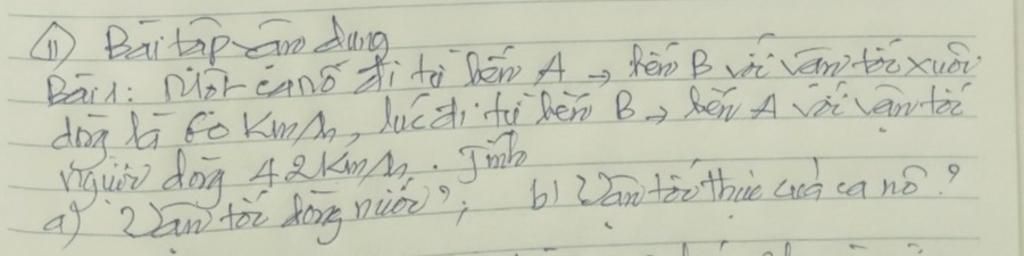 II) Bài tập vận dụng
Bài 1: Một ca nô đi từ bến A → bến B với vận tốc xuôi
dòng là 60 Km/h, lúc đi từ bến B → bến A với vận tốc
ngược dòng 42 Km/h. Tính
a) Vận tốc dòng nước?; b) Vận tốc thực của ca nô?